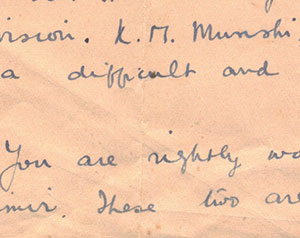 vision. K. M. Munshi,
a difficult and
You are rightly wo
These two are